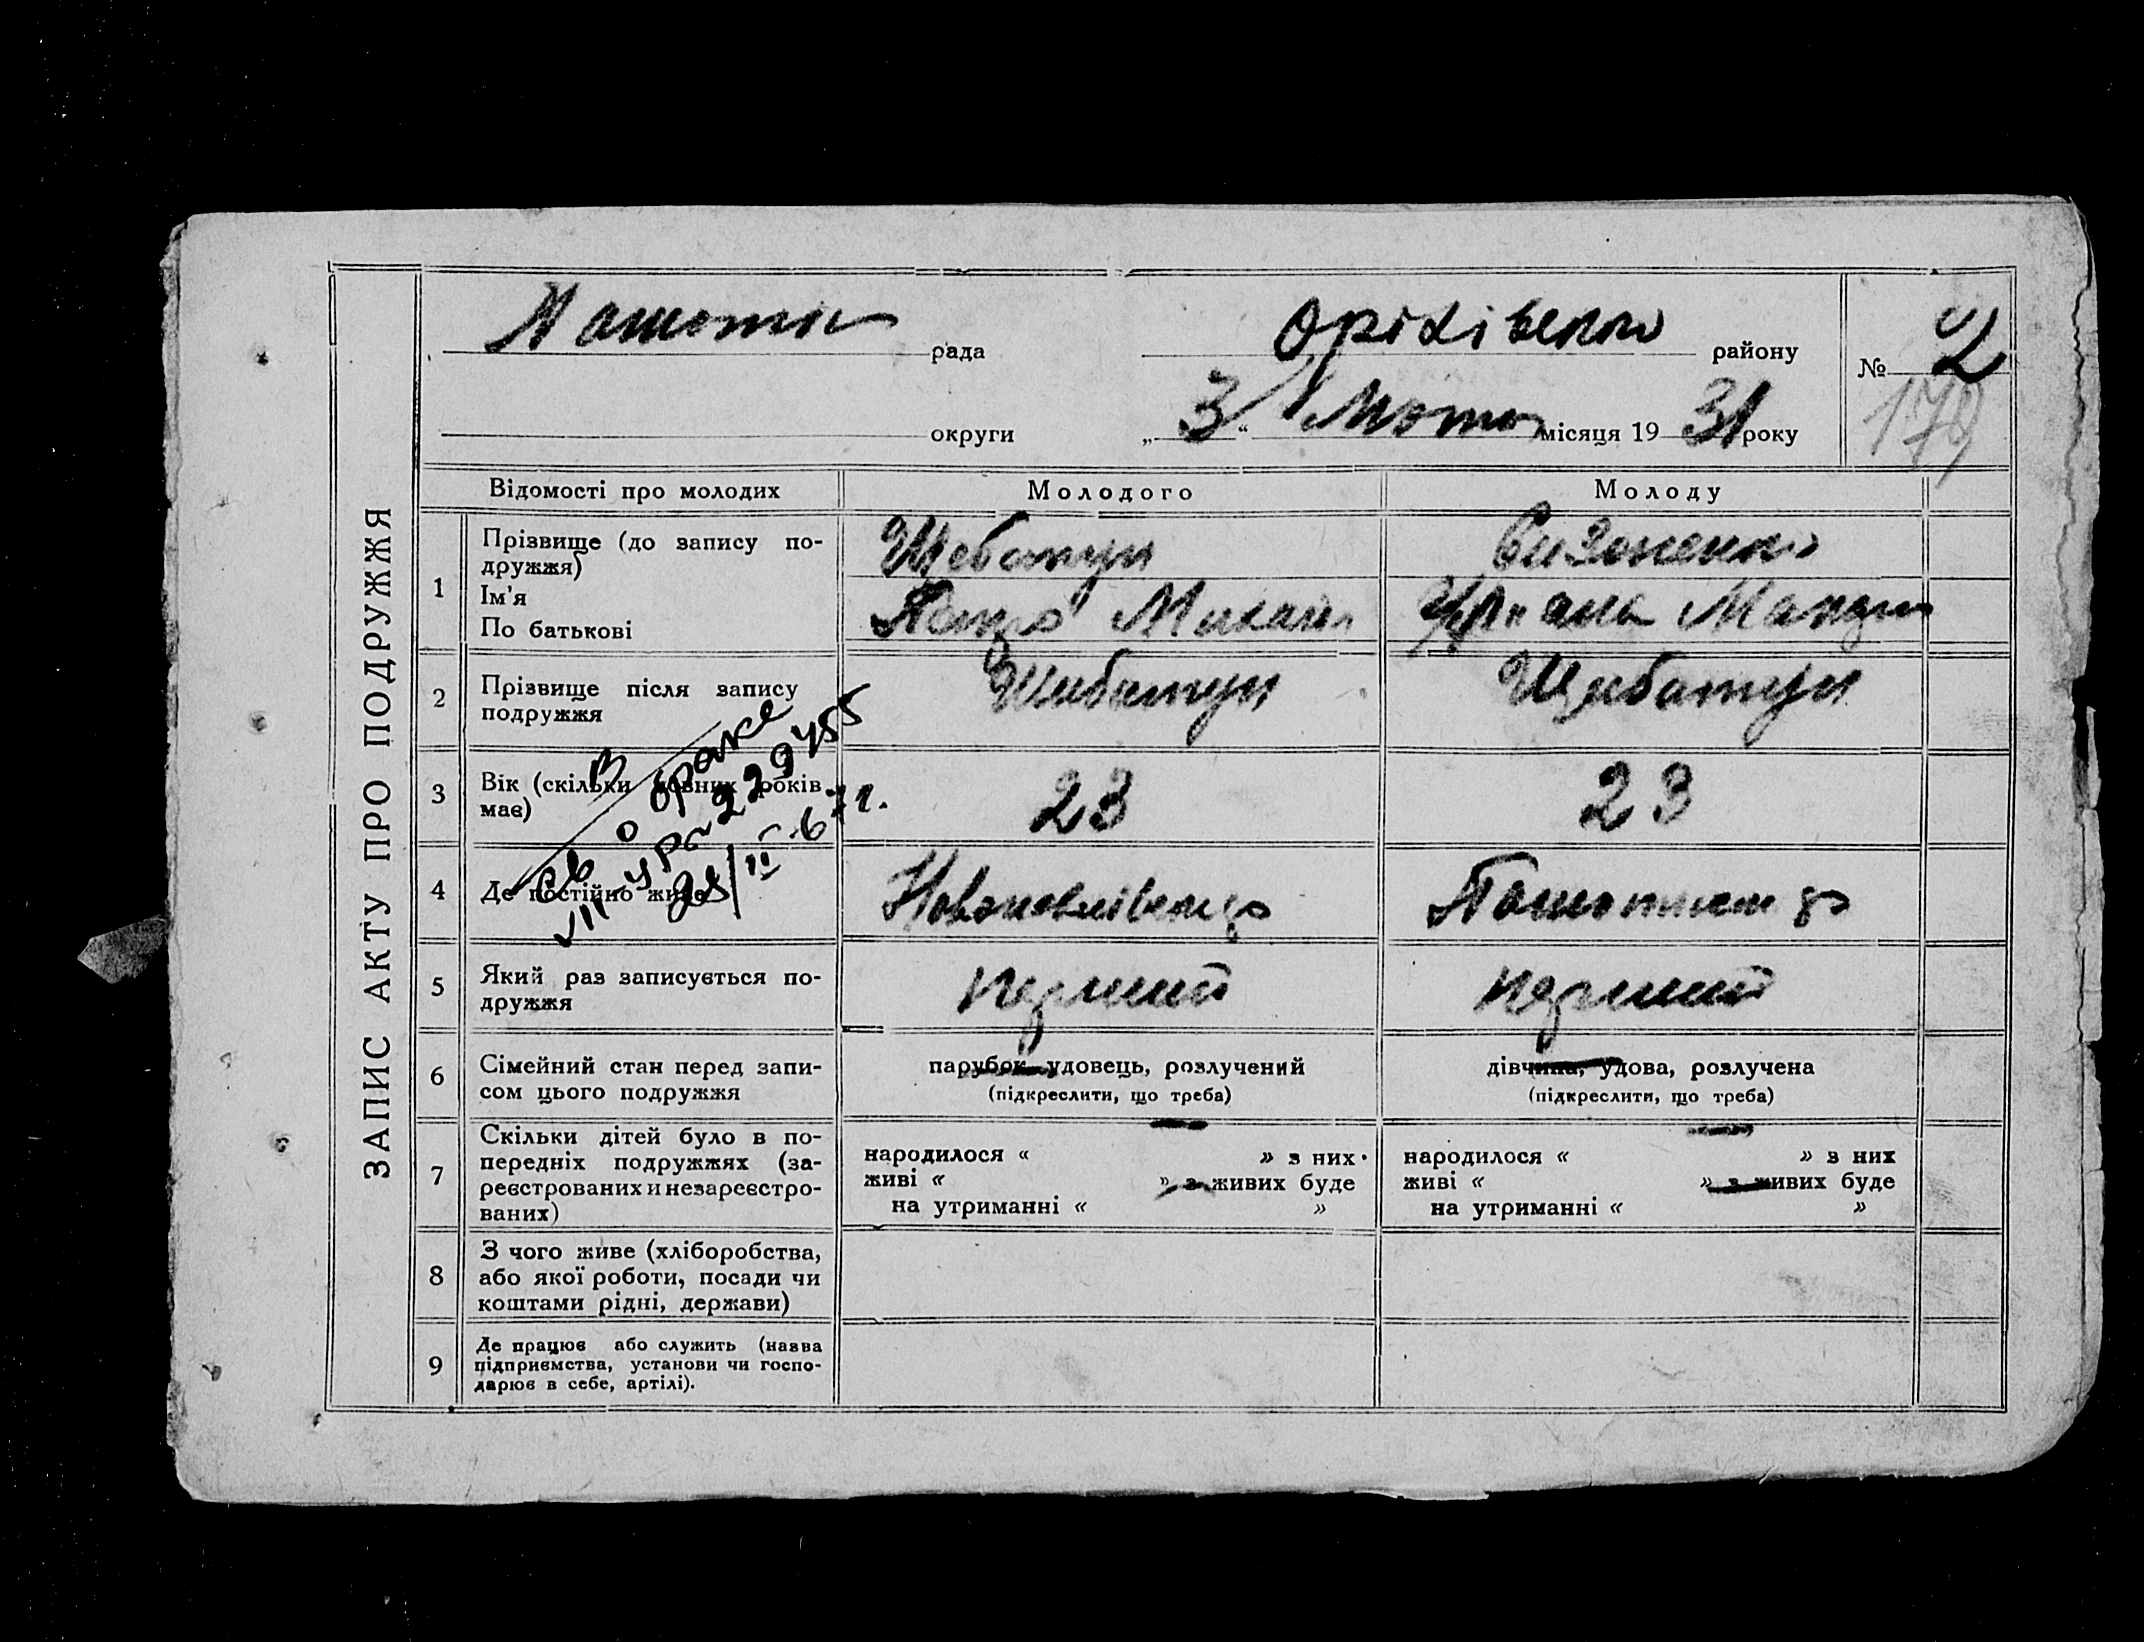 ЗАПИС АКТУ ПРО ПОДРУЖЖЯ
рада
Оріхівском району
№ 2
178
округи
„ 3 “ Лютого місяця 19 31 року
Відомості про молодих
Молодого
Молоду
1
Прізвище (до запису по-
дружжя)
Ім'я
По батькові
Щебатун
Петро Михайл
Сизоненко
2
Прізвище після запису
подружжя
Щебатун
Щебатун
3
Вік (скільки повних років
має)
23
23
св о браке
229455
28/II-67г.
4
Де постійно живе
5
Який раз записується по-
дружжя
перший
перший
6
Сімейний стан перед запи-
сом цього подружжя
парубок, удовець, розлучений
(підкреслити, що треба)
дівчина, удова, розлучена
(підкреслити, що треба)
7
Скільки дітей було в по-
передніх подружжях (за-
реєстрованих и незареєстро-
ваних)
народилося « » з них
живі « » з живих буде
на утриманні « »
народилося « » з них
живі « » з живих буде
на утриманні « »
8
З чого живе (хліборобства,
або якої роботи, посади чи
коштами рідні, держави)
9
Де працює або служить (назва
підприємства, установи чи госпо-
дарює в себе, артілі).